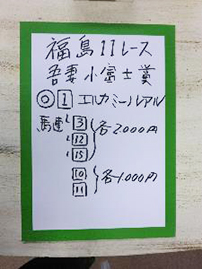 福島11レース
吾妻小富士賞
◎ 1 エルカミーノレアル
馬連 3
12 各2,000円
15
10 各1,000円
11